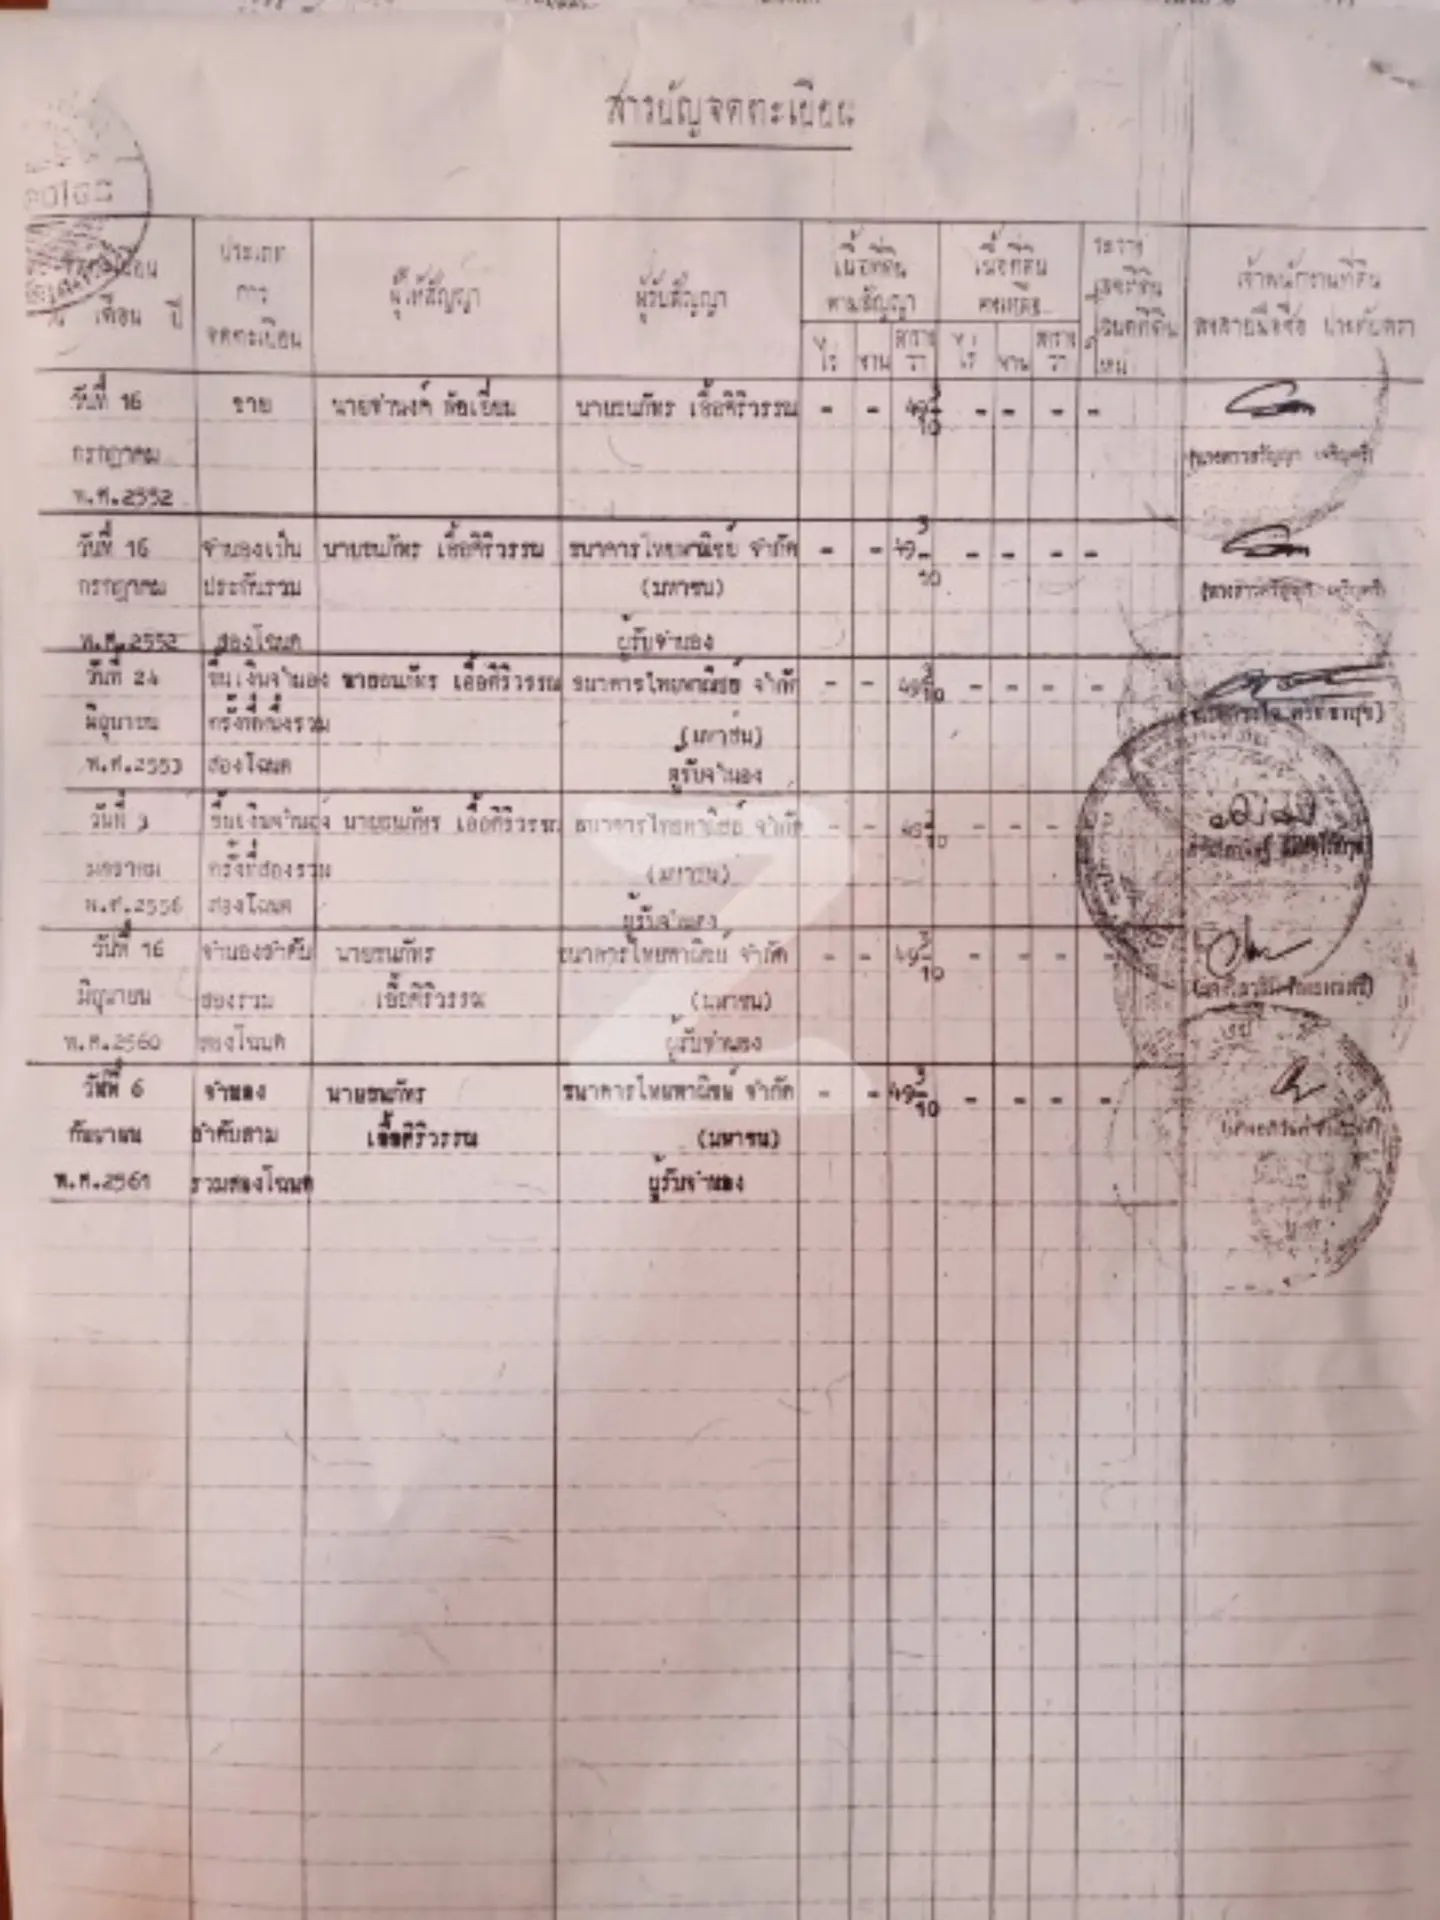 สารบัญจดทะเบียน
จดทะเบียน ประเภท ผู้ให้สัญญา ผู้รับสัญญา เนื้อที่ดิน เนื้อที่ดิน ระวาง เจ้าพนักงานที่ดิน
เดือน ปี การ ตามสัญญา คงเหลือ เลขที่ดิน ลงลายมือชื่อ ประทับตรา
จดทะเบียน ไร่ งาน ตาราง วา ไร่ งาน ตาราง วา โฉนดที่ดิน ใหม่
วันที่ 16 ขาย นายจำนงค์ นายธนภัทร เอื้อศิริวรรณ - - 49 3/10 - - - -
กรกฎาคม
พ.ศ.2552
วันที่ 16 จำนองเป็น นายธนภัทร เอื้อศิริวรรณ ธนาคารไทยพาณิชย์ จำกัด - - 49 3/10 - - - -
กรกฎาคม ประกันรวม (มหาชน)
พ.ศ.2552 สองโฉนด ผู้รับจำนอง
วันที่ 24 ขึ้นเงินจำนอง นายธนภัทร เอื้อศิริวรรณ ธนาคารไทยพาณิชย์ จำกัด - - 49 3/10 - - - -
มิถุนายน ครั้งที่หนึ่งรวม (มหาชน)
พ.ศ.2553 สองโฉนด ผู้รับจำนอง
วันที่ 3 ขึ้นเงินจำนอง นายธนภัทร เอื้อศิริวรรณ ธนาคารไทยพาณิชย์ จำกัด - - 49 3/10 - - - -
มกราคม ครั้งที่สองรวม (มหาชน)
พ.ศ.2556 สองโฉนด ผู้รับจำนอง
วันที่ 16 จำนองลำดับ นายธนภัทร ธนาคารไทยพาณิชย์ จำกัด - - 49 3/10 - - - -
มิถุนายน สองรวม เอื้อศิริวรรณ (มหาชน)
พ.ศ.2560 สองโฉนด ผู้รับจำนอง
วันที่ 6 จำนอง นายธนภัทร ธนาคารไทยพาณิชย์ จำกัด - - 49 3/10 - - - -
กันยายน ลำดับสาม เอื้อศิริวรรณ (มหาชน)
พ.ศ.2561 รวมสองโฉนด ผู้รับจำนอง